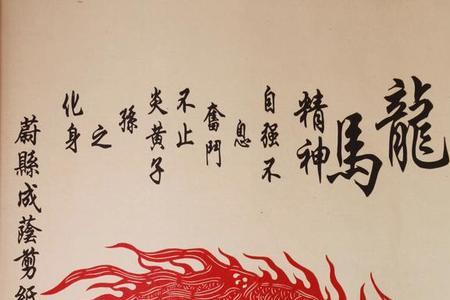 龍
馬
精神
自强不
息
奮鬥
不止
炎黃子
孫
之
化身
蔚縣成蔭剪紙